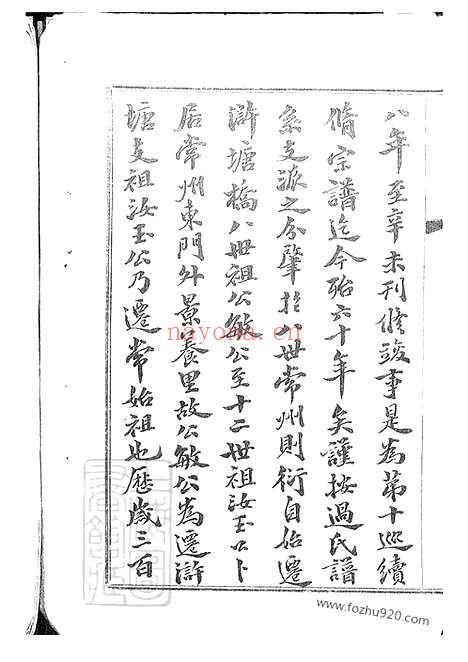 八年至辛未刊修竣事是為第十巡續
脩宗譜迄今殆六十年矣謹按過氏譜
系支派之分肇於八世常州則衍自始遷
滸塘橋八世祖公敏公至十二世祖汝玉公卜
居常州東門外景養里故公敏公為遷滸
塘支祖汝玉公乃遷常始祖也歷歲三百
nayona.cn
www.fozhu920.com